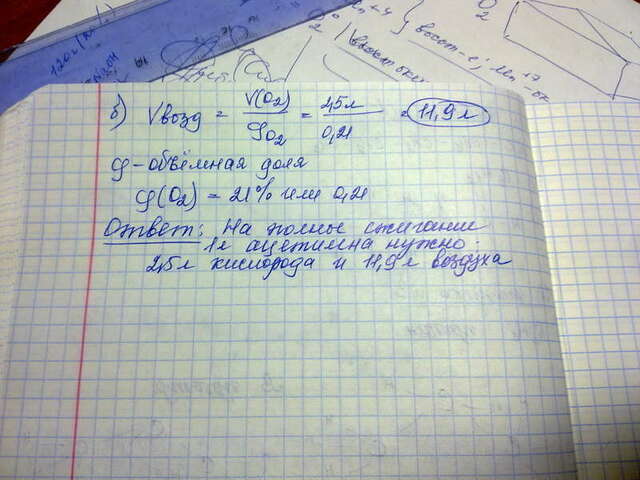 120г
б) Vвозд = V(O₂) / φO₂ = 2,5л / 0,21 = 11,9л
φ - объёмная доля
φ(O₂) = 21% или 0,21
Ответ: На полное сжигание
1л ацетилена нужно
2,5л кислорода и 11,9л воздуха